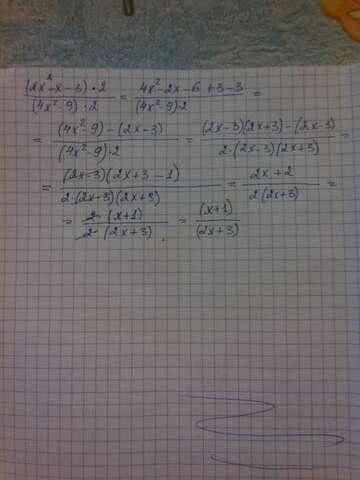 (2x²-x-3)·2 / (4x²-9)·2 = 4x²-2x-6+3-3 / (4x²-9)·2 =
= (4x²-9)-(2x-3) / (4x²-9)·2 = (2x-3)(2x+3)-(2x-3) / 2·(2x-3)(2x+3) =
= (2x-3)(2x+3-1) / 2·(2x-3)(2x+3) = 2x+2 / 2(2x+3) =
= 2·(x+1) / 2·(2x+3) = (x+1) / (2x+3)